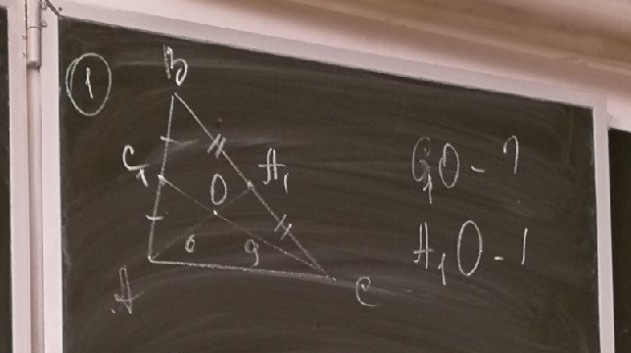 1
B
C₁
O
A₁
6
9
A
C
C₁O - ?
A₁O - ?